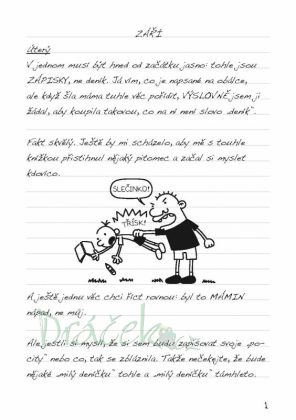 ZÁŘÍ
Úterý
V jednom musí být hned od začátku jasno: tohle jsou
ZÁPISKY, ne deník. Já vím, co je napsané na obálce,
ale když šla máma tuhle věc pořídit, VÝSLOVNĚ jsem ji
žádal, aby koupila takovou, co na ní není slovo „deník“.
Fakt skvělý. Ještě by mi scházelo, aby mě s touhle
knížkou přistihnul nějaký pitomec a začal si myslet
kdovíco.
SLEČINKO!
TŘÍSK!
A ještě jednu věc chci říct rovnou: byl to MÁMIN
nápad, ne můj.
Dráček
Ale jestli si myslí, že si sem budu zapisovat svoje „po-
city“ nebo co, tak se zbláznila. Takže nečekejte, že bude
nějaké „milý deníčku“ tohle a „milý deníčku“ támhleto.
1